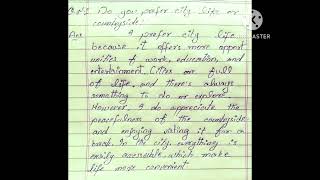 Q.N.1 Do you prefer city life or
countryside?
Ans I prefer city life
because it offers more opport
unities of work, education, and
entertainment. Cities are full
of life, and there's always
something to do or explore.
However, I do appreciate the
peacefulness of the countryside
and enjoying visiting it for a
back. In the city, everything is
easily accessible, which make
life more convenient.
MASTER